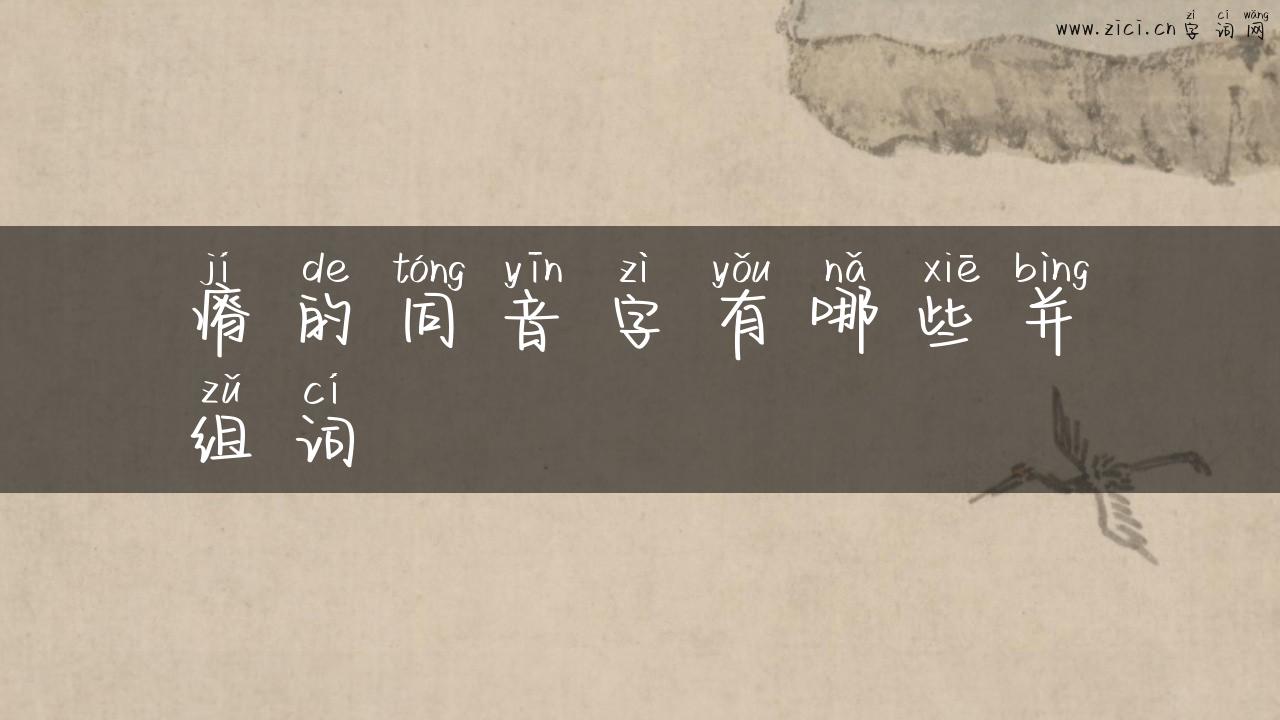 zì cí wǎng
www.zici.cn字词网
jí de tóng yīn zì yǒu nǎ xiē bìng
瘠的同音字有哪些并
zǔ cí
组词